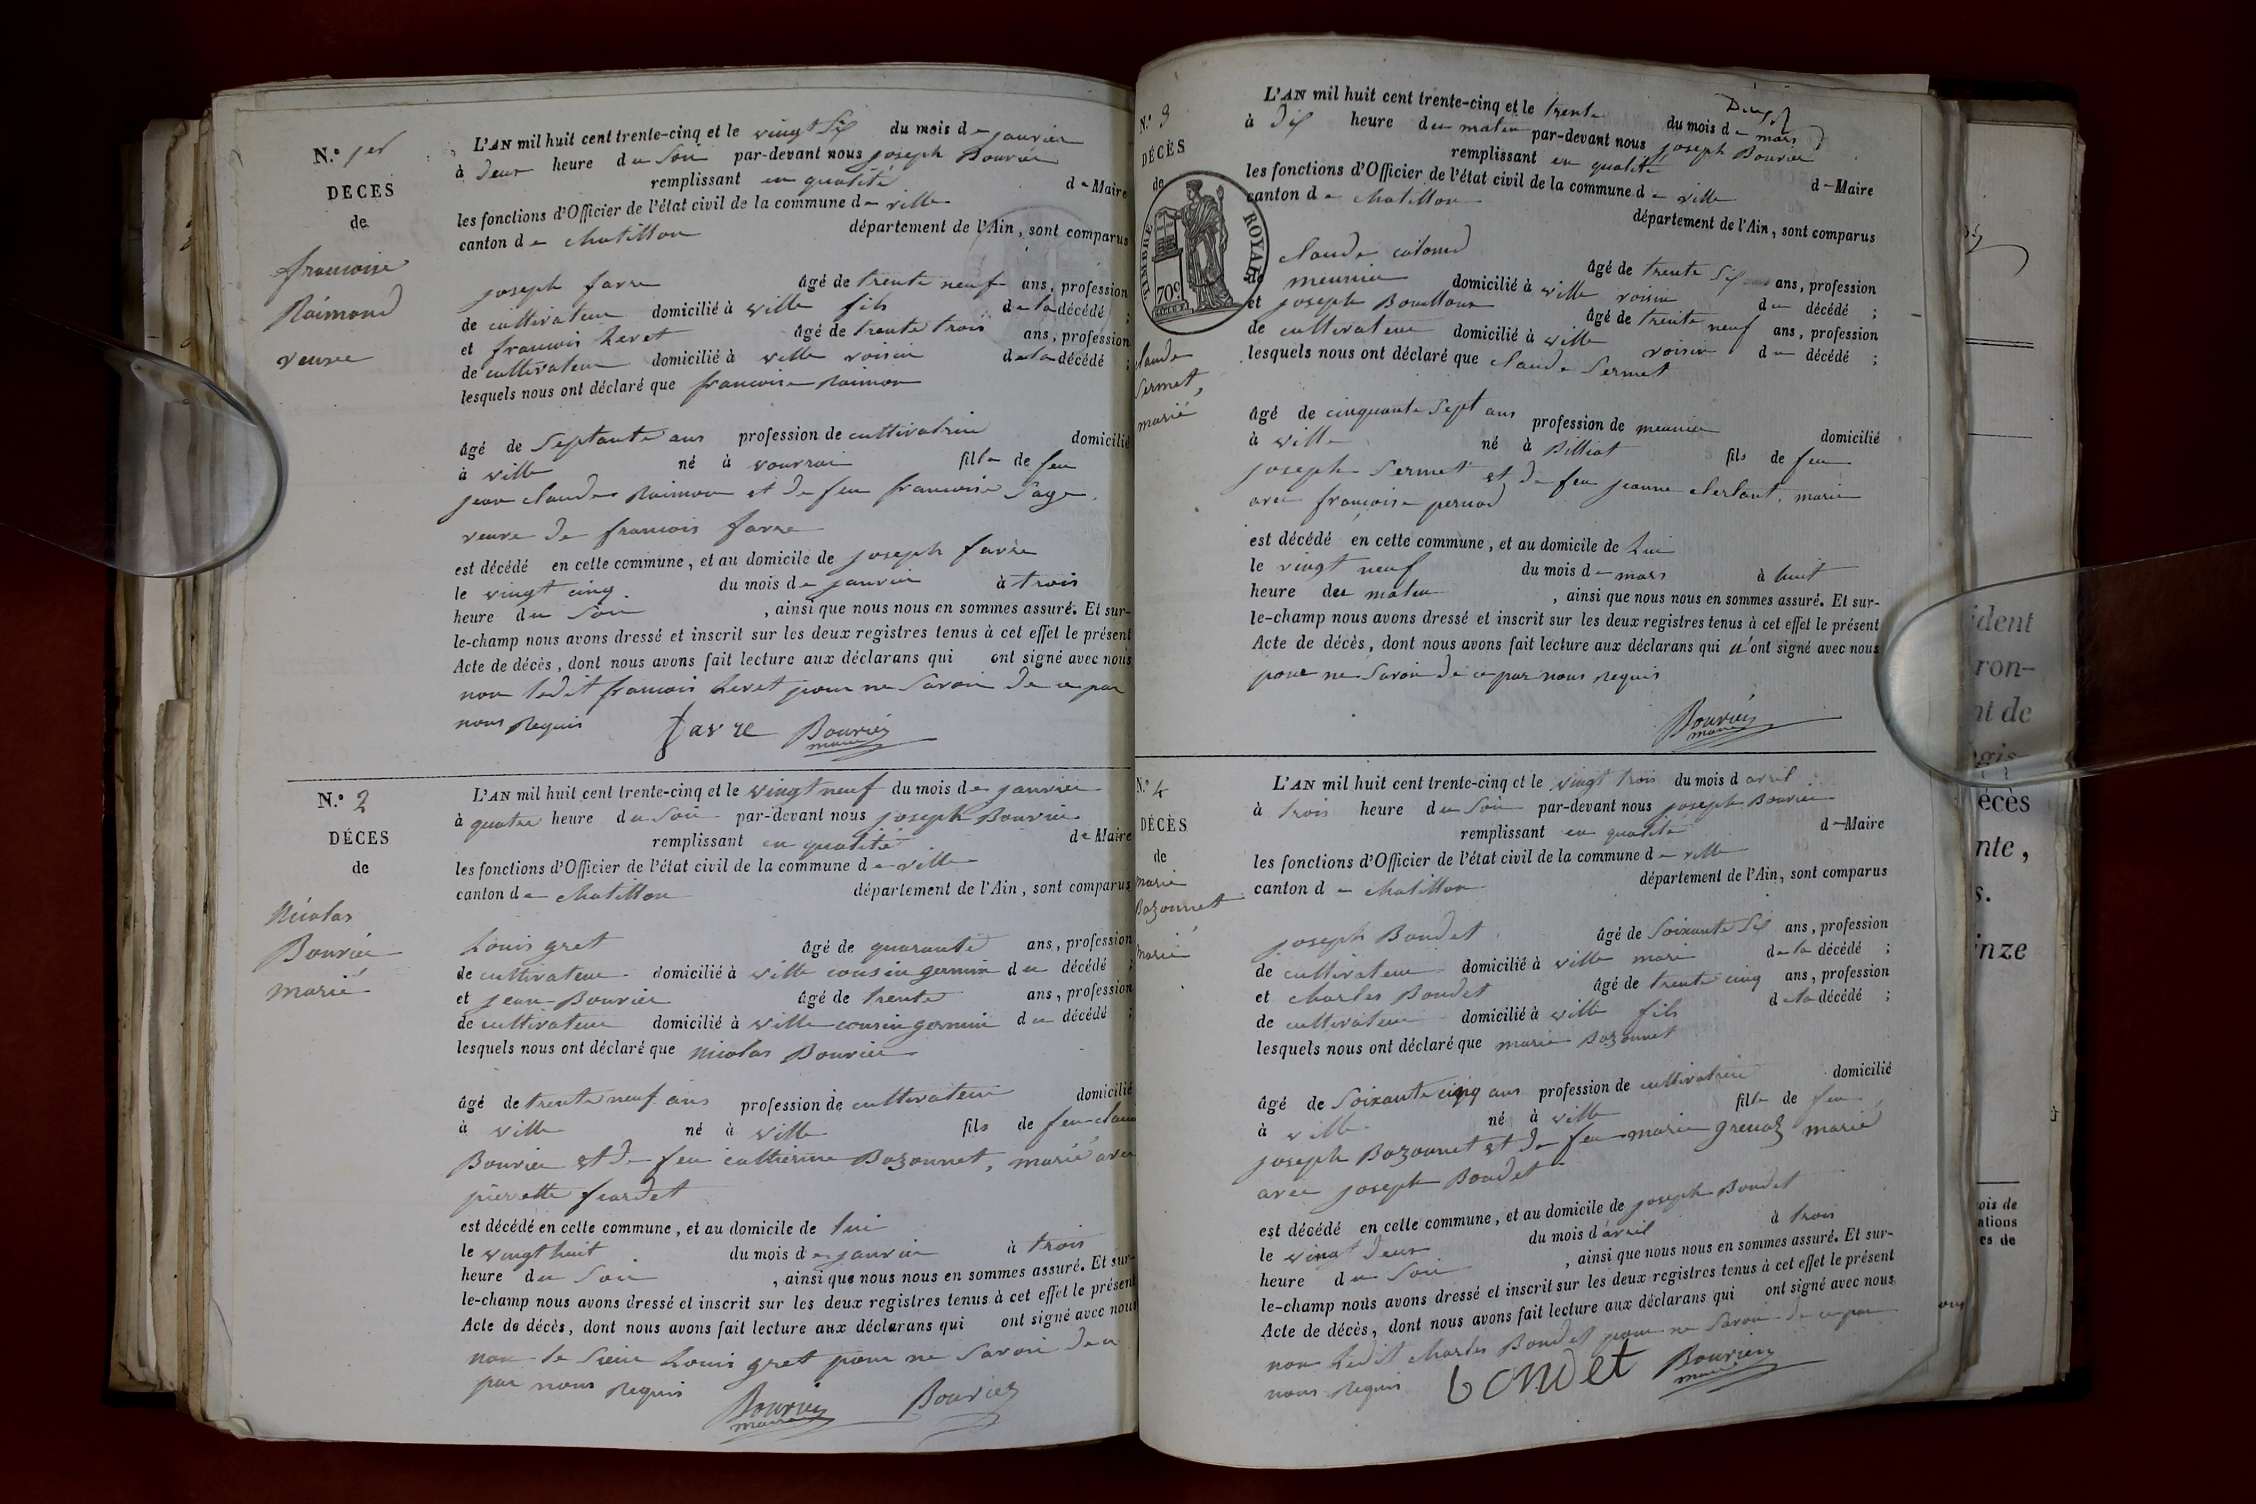 N.º 1er
DECES
de
francoise
Raimond
veuve
L'AN mil huit cent trente-cinq et le vingt Six du mois de janvier
à deux heure du Soir par-devant nous joseph Bouvier
remplissant en qualité de Maire
les fonctions d'Officier de l'état civil de la commune de ville
canton de chatillon département de l'Ain, sont comparus
joseph favre âgé de trente neuf ans, profession
de cultivateur domicilié à ville fils de la décédé ;
et francois Leret âgé de trente trois ans, profession
de cultivateur domicilié à ville voisin de la décédé ;
lesquels nous ont déclaré que francoise Raimon
âgé de Septante ans profession de cultivatrice domicilié
à ville né à vouvrai fille de feu
jean claude Raimon et de feu francoise Sage
veuve de francois favre
est décédé en cette commune, et au domicile de joseph favre
le vingt cinq du mois de janvier à trois
heure du Soir , ainsi que nous nous en sommes assuré. Et sur-
le-champ nous avons dressé et inscrit sur les deux registres tenus à cet effet le présent
Acte de décès, dont nous avons fait lecture aux déclarans qui ont signé avec nous
non ledit francois Leret pour ne Savoir de ce par
nous Requis favre Bouvier
maire
N.º 2
DÉCES
de
Nicolas
Bouvier
marié
L'AN mil huit cent trente-cinq et le vingt neuf du mois de janvier
à quatre heure du Soir par-devant nous joseph Bouvier
remplissant en qualité de Maire
les fonctions d'Officier de l'état civil de la commune de ville
canton de chatillon département de l'Ain, sont comparus
Louis gret âgé de quarante ans, profession
de cultivateur domicilié à ville cousin germain du décédé ;
et jean Bouvier âgé de trente ans, profession
de cultivateur domicilié à ville cousin germain du décédé ;
lesquels nous ont déclaré que nicolas Bouvier
âgé de trente neuf ans profession de cultivateur domicilié
à ville né à ville fils de feu claude
Bouvier et de feu catherine Bozonnet, marié avec
pierrette
est décédé en cette commune, et au domicile de lui
le vingt huit du mois de janvier à trois
heure du Soir , ainsi que nous nous en sommes assuré. Et sur-
le-champ nous avons dressé et inscrit sur les deux registres tenus à cet effet le présent
Acte de décès, dont nous avons fait lecture aux déclarans qui ont signé avec nous
non le Sieur Louis gret pour ne Savoir de ce
par nous Requis Bouvier Bouvier
maire
N.º 3
DÉCÈS
de
TIMBRE ROYAL
70c
claude
Sermet,
marié
L'AN mil huit cent trente-cinq et le trente du mois de mars
à dix heure du matin par-devant nous joseph Bouvier
remplissant en qualité de Maire
les fonctions d'Officier de l'état civil de la commune de ville
canton de chatillon département de l'Ain, sont comparus
claude âgé de trente Six ans, profession
de meunier domicilié à ville voisin du décédé ;
et joseph Bouilloux âgé de trente neuf ans, profession
de cultivateur domicilié à ville voisin du décédé ;
lesquels nous ont déclaré que claude Sermet
âgé de cinquante Sept ans profession de meunier domicilié
à ville né à Billiat fils de feu
joseph Sermet et de feu jeanne marié
avec francoise pernod
est décédé en cette commune, et au domicile de Lui
le vingt neuf du mois de mars à huit
heure du matin , ainsi que nous nous en sommes assuré. Et sur-
le-champ nous avons dressé et inscrit sur les deux registres tenus à cet effet le présent
Acte de décès, dont nous avons fait lecture aux déclarans qui n'ont signé avec nous
pour ne Savoir de ce par nous Requis
Bouvier
maire
N.º 4
DÉCÈS
de
marie
Bozonnet
marié
L'AN mil huit cent trente-cinq et le vingt trois du mois d avril
à trois heure du Soir par-devant nous joseph Bouvier
remplissant en qualité de Maire
les fonctions d'Officier de l'état civil de la commune de ville
canton de chatillon département de l'Ain, sont comparus
joseph Bondet âgé de Soixante Six ans, profession
de cultivateur domicilié à ville mari de la décédé ;
et charles Bondet âgé de trente cinq ans, profession
de cultivateur domicilié à ville fils de la décédé ;
lesquels nous ont déclaré que marie Bozonnet
âgé de Soixante cinq ans profession de cultivatrice domicilié
à ville né à ville fille de feu
joseph Bozonnet et de feu marie grenoz marié
avec joseph Bondet
est décédé en cette commune, et au domicile de joseph Bondet
le vingt deux du mois d'avril à trois
heure du Soir , ainsi que nous nous en sommes assuré. Et sur-
le-champ nous avons dressé et inscrit sur les deux registres tenus à cet effet le présent
Acte de décès, dont nous avons fait lecture aux déclarans qui ont signé avec nous
non Ledit charles Bondet pour ne Savoir de ce par
nous Requis bondet Bouvier
maire
ident
ron-
nt de
egis-
écès
nte,
s.
inze
ois de
ations
es de